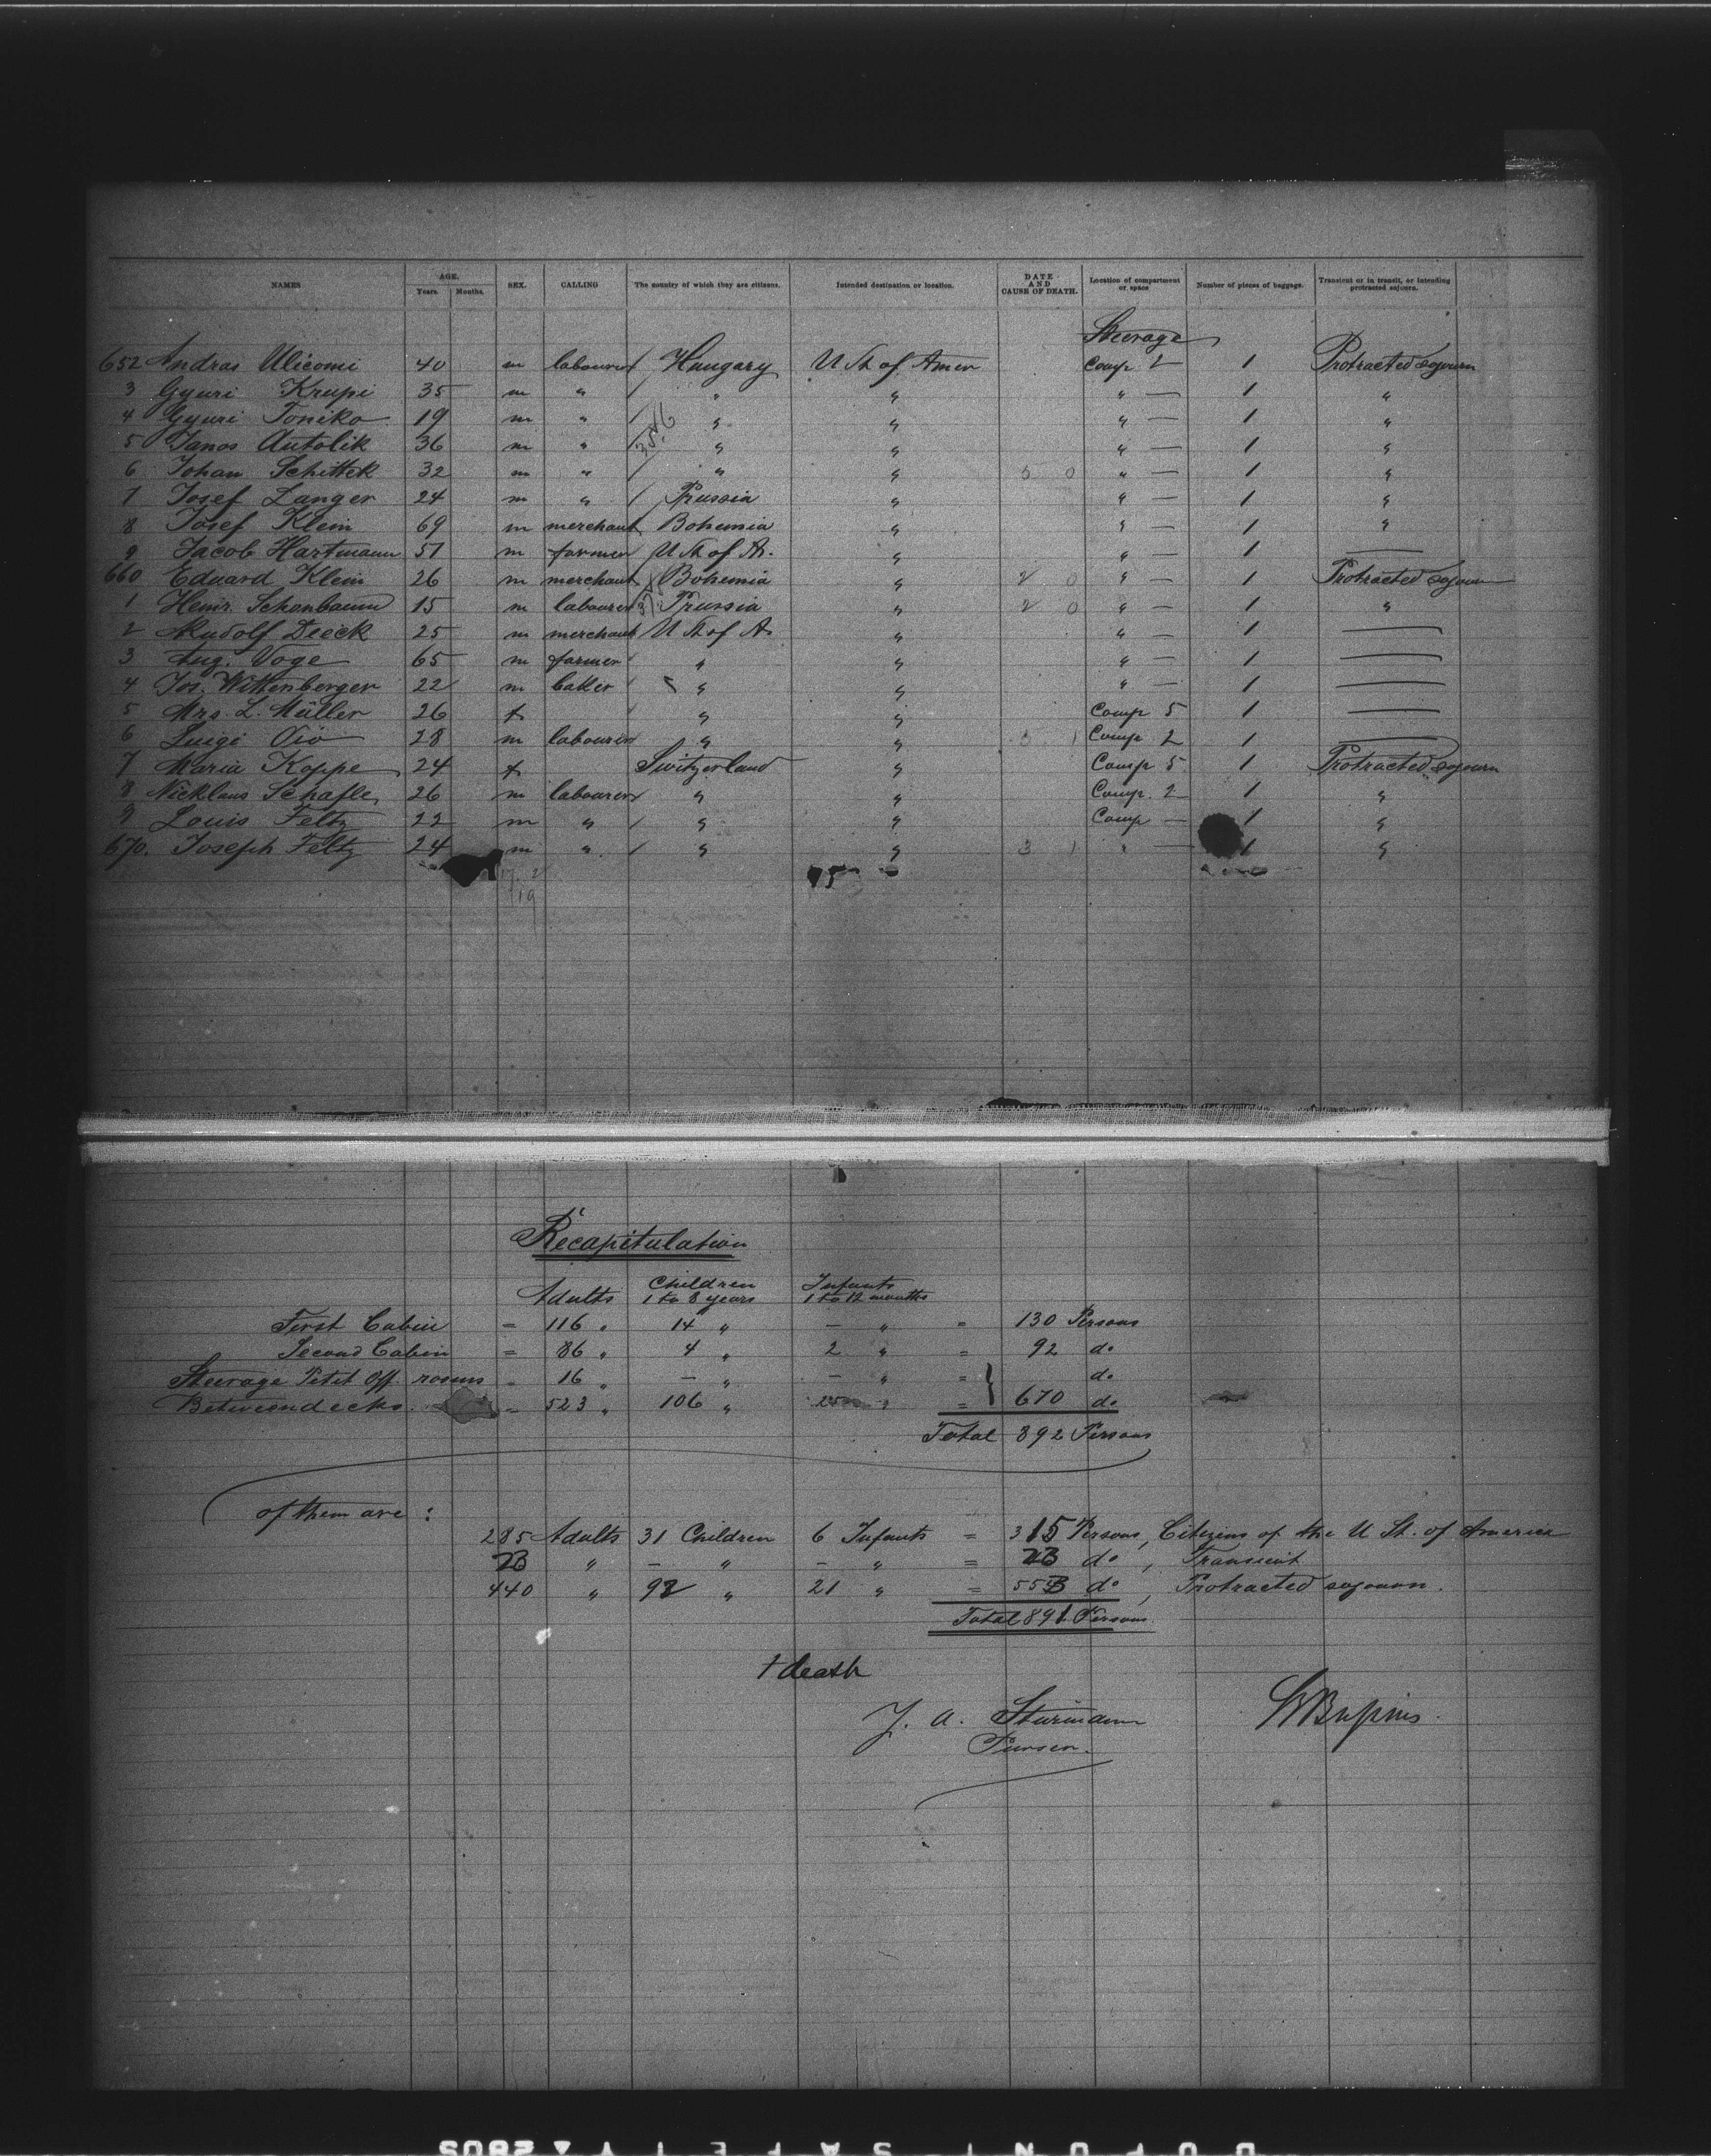 NAMES AGE. Years. Months. SEX. CALLING The country of which they are citizens. Intended destination or location. DATE AND CAUSE OF DEATH. Location of compartment or space Number of pieces of baggage. Transient or in transit, or intending protracted sojourn.
Steerage
652 Andras Ulicomi 40 m labourer Hungary U St of Amer Comp 2 1 Protracted sojourn
3 Gyuri Krupi 35 m " " " " — 1 "
4 Gyuri Toniko 19 m " " " " — 1 "
5 Janos Autolik 36 m " " " " — 1 "
6 Johan Schittek 32 m " " " 3 0 " — 1 "
7 Josef Langer 24 m " Prussia " " — 1 "
8 Josef Klein 69 m merchant Bohemia " " — 1 "
9 Jacob Hartmann 51 m farmer U St of A. " " — 1 —
660 Eduard Klein 26 m merchant Bohemia " 2 0 " — 1 Protracted sojourn
1 Heinr. Schonbaum 15 m labourer Prussia " 2 0 " — 1 "
2 Rudolf Dieck 25 m merchant U St of A. " " — 1 —
3 Aug. Voge 65 m farmer " " " — 1 —
4 Jos. Wittenberger 22 m baker " " " — 1 —
5 Mrs. L. Müller 26 f " " Comp 5 1 —
6 Luigi Vio 28 m labourer " " 3 1 Comp 2 1 —
7 Maria Koppe 24 f Switzerland " Comp 5 1 Protracted sojourn
8 Nicklaus Schafle 26 m labourer " " Comp. 2 1 "
9 Louis Feltz 22 m " " " Comp — 1 "
670. Joseph Feltz 24 m " " " 3 1 " — 1 "
Recapitulation
Adults Children 1 to 8 years Infants 1 to 12 months
First Cabin = 116 " 14 " — " = 130 Persons
Second Cabin = 86 " 4 " 2 " = 92 do
Steerage Petit Off. rooms = 16 " — " — " = } do
Betweendecks = 523 " 106 " 25 " = 670 do
Total 892 Persons
of them are :
285 Adults 31 Children 6 Infants = 315 Persons, Citizens of the U St. of America
" — " — " = do, Transient
440 " 92 " 21 " = do, Protracted sojourn.
Total 891 Persons
1 death
J. A. Sturmann
Purser.